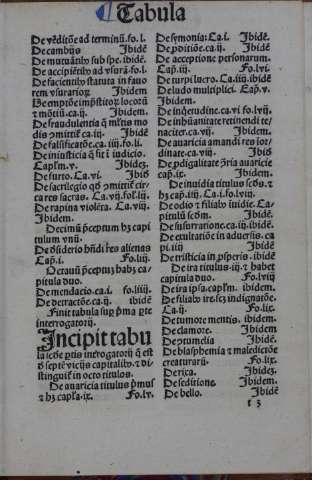 Tabula
De vẽditõe ad terminũ. fo. l.
De cambijs Ibidẽ
De mutuãtib⁹ sub spe. ibidẽ.
De accipiẽtib⁹ ad vsurã. fo. l.
De faciẽtib⁹ statuta in fauo
rem vsurarior̃ Ibidem
De emptõe
Ibidem.
De fraudulentia
De falsificatõe. ca. iiij. fo. li.
De iniusticia q̃ fit ĩ iudicio.
Capľm. v. Ibideʒ.
De furto. Ca. vi. Ibiđ
De sacrilegio
res sacras. Ca. vij. foľ. lij.
De rapina violẽta. Ca. viij.
Ibidem.
Decimũ p̃ceptum hʒ capi
tulum vnũ.
De dẽsiderio hñdi res alienas
Cap̃. i. Fo. liij.
Octauũ p̃ceptuʒ habʒ ca
pitula duo.
De mendacio. ca. i. fo. liiij.
De detractõe. ca. ij. ibidẽ
Finit tabula sup p̃ma p̃te
interrogatorij.
Incipit tabu
la scđe p̃tis interrogatorij q̃ est
đ septẽ vicijs capitalib⁹. ⁊ di
stinguiť in octo titulos.
De auaricia titulus p̃mus̉
⁊ hʒ capľa. ix. Fo. lv.
De symonia: Ca. i. Ibidẽ.
De positiõe. ca. ij. Ibidẽ.
De acceptione personarum.
Cap̃. iij. Fo. lvi.
De turpi lucro. Ca. iiij. ibidẽ
De ludo multiplici. Cap̃. v.
Ibidem.
De ingr̃tudine. ca. vi fo. lvij.
De inhũanitate retinendi te/
naciter. ca. vij. Ibidem.
De auaricia amandi res ior
dinate. ca. viij Ibiđ
De p̱digalitate
cap̃. ix. Ibidem.
De inuidia titulus scđus. ⁊
hʒ cap̃. iij. Ca. i. fo. lviij.
De odio ⁊ filiab⁹ ĩuidie. Ca-
pitulũ scđm. Ibidẽ.
De susurratione. ca. iij. ibidẽ.
De exultatiõe in aduersis. ca
pi. iiij Ibidẽ
De tristicia in p̱speris. ibidẽ
De ira titulus. iij. ⁊ habet
capitula duo. Fo. lviij
De ira ipsa. capľm. ibidem.
De filiab⁹ ire. scʒ indignatõe.
Ca. ij. Fo. lix.
De tumore mentis. ibidem.
De clamore. Ibidem
De ↄtumelia Ibidẽ
De blasphemia ⁊ maledictõe
creaturar̃. Fo. lix.
De rixa. Ibideʒ.
De seditione. Ibidem.
De bello. Ibidẽ
t 3